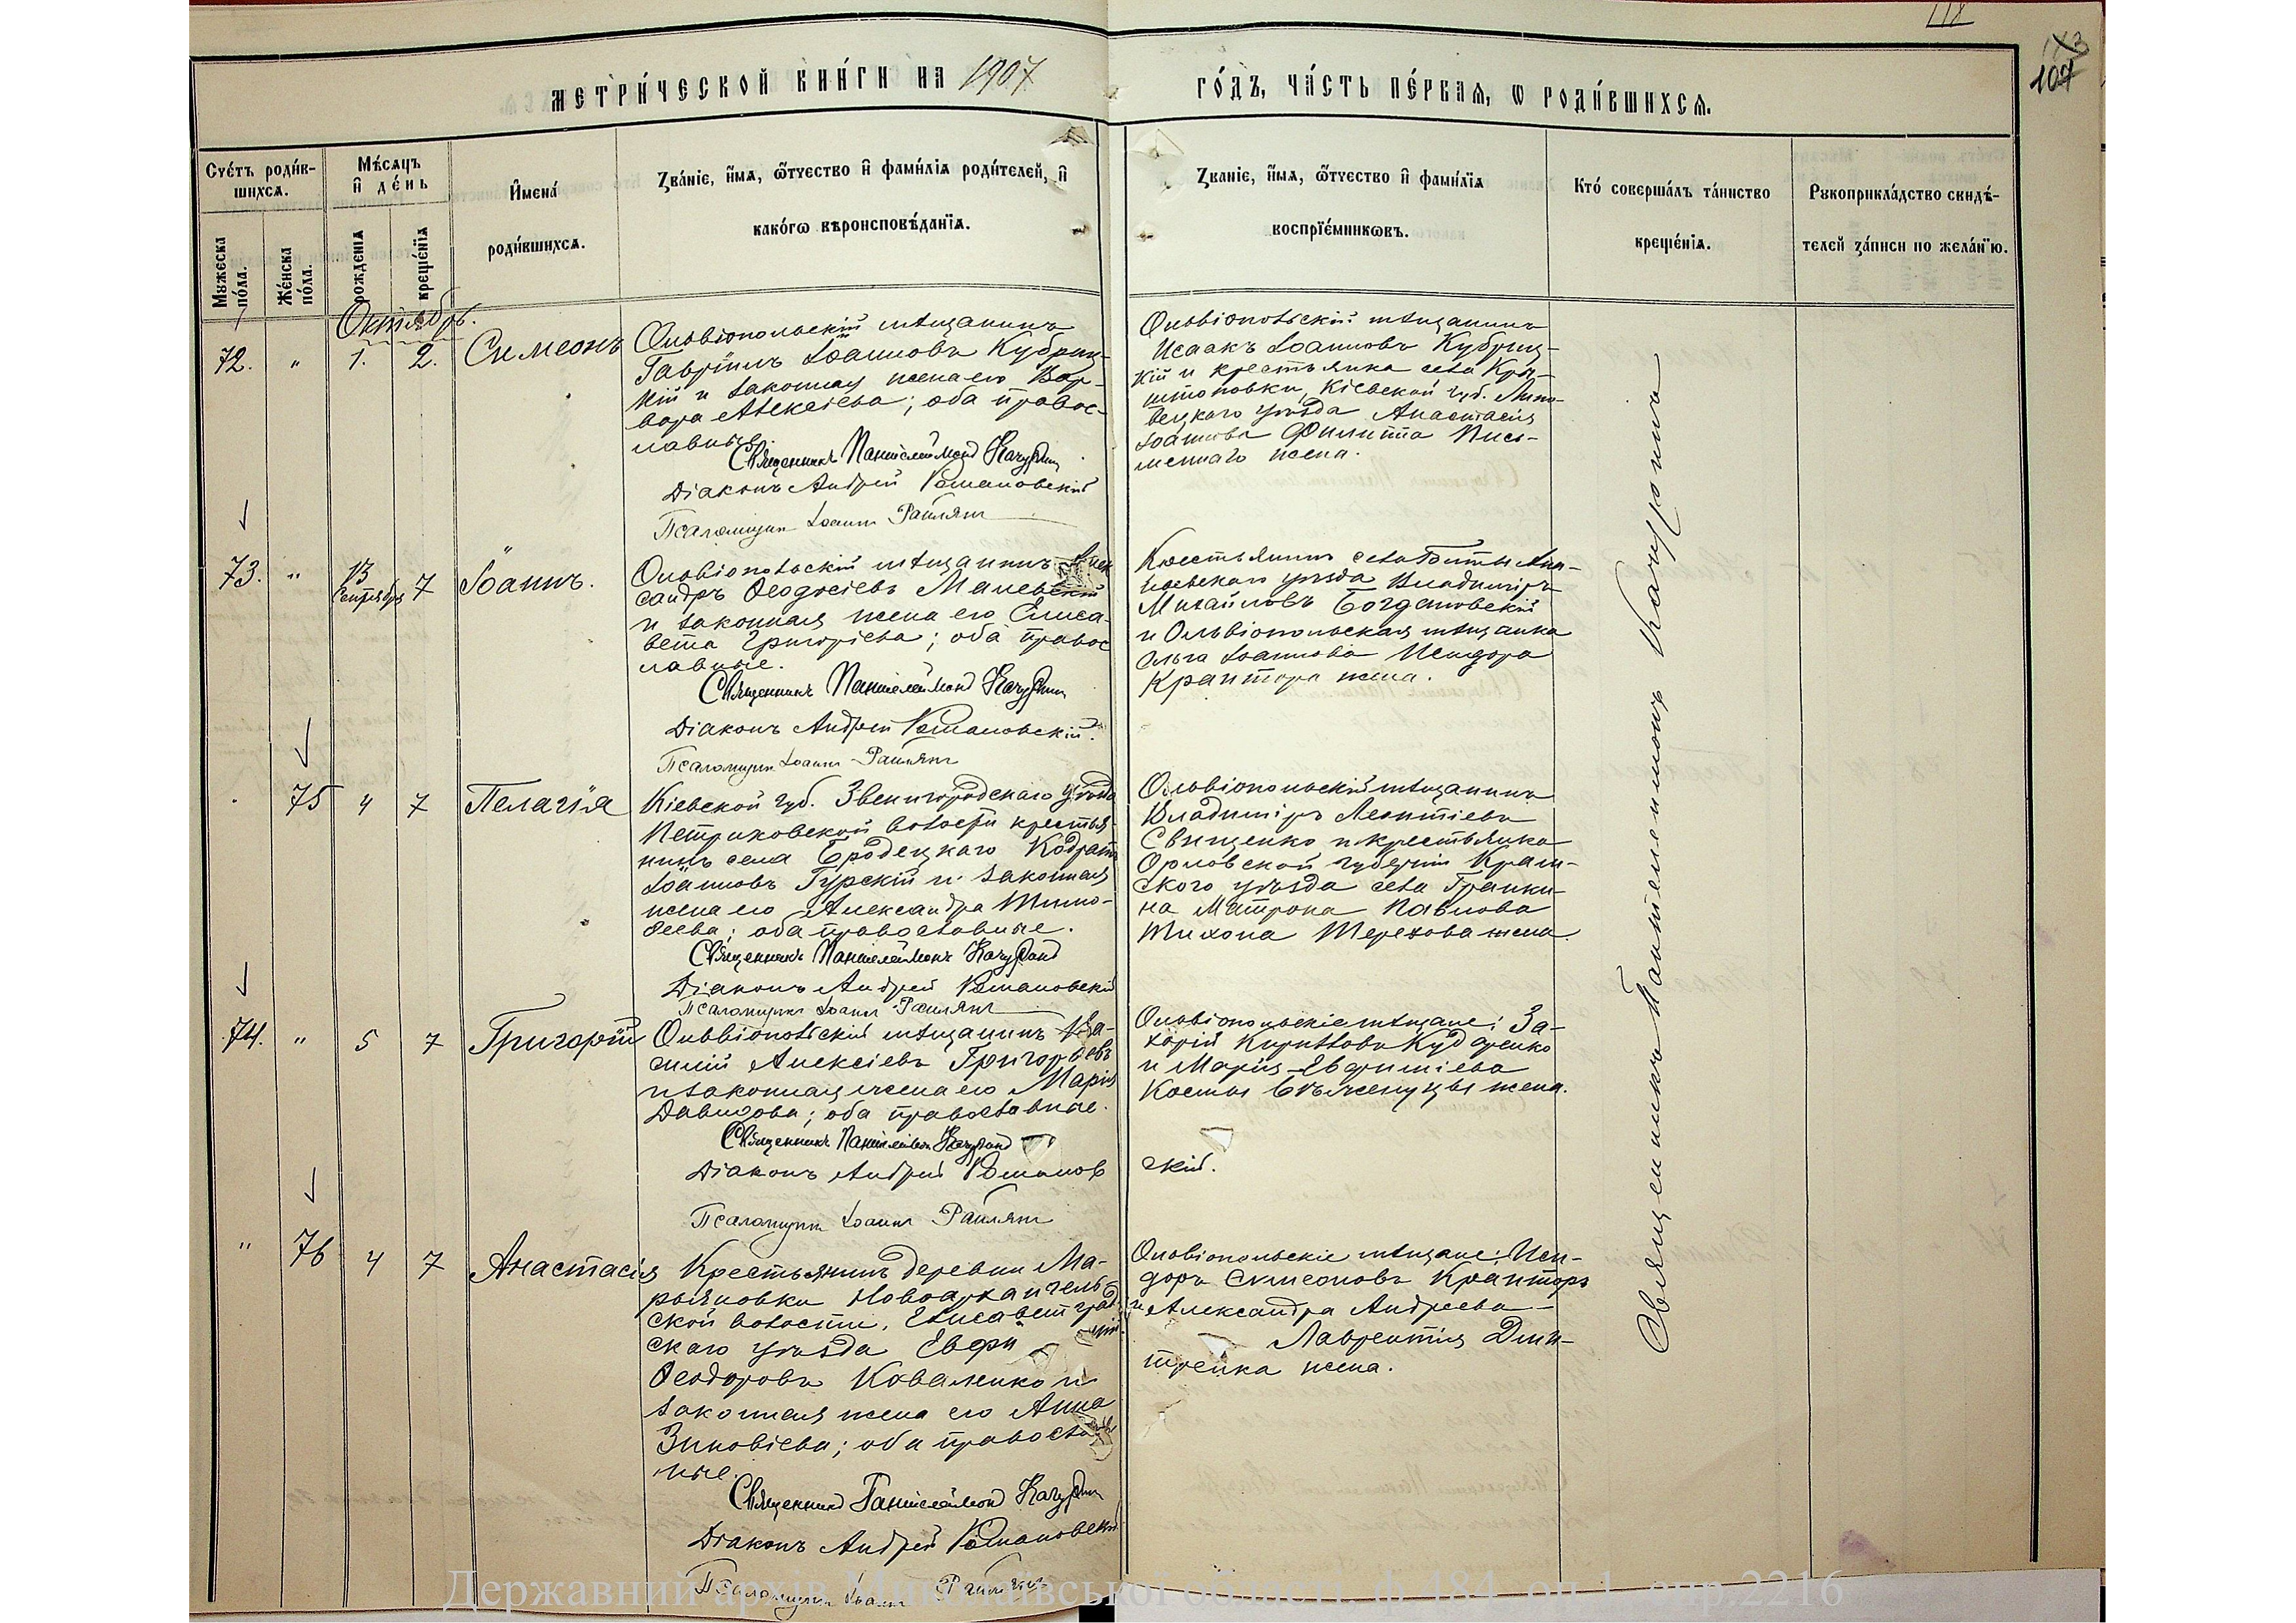 118
103
107
МЕТРИ́ЧЕСКОЙ КНИ́ГИ НА 1907
ГО́ДЪ, ЧА́СТЬ ПЕ́РВАѦ, Ѡ РОДИ́ВШИХСѦ.
Счетъ роди́в-
шихсѧ.
Мꙋжеска
по́ла.
Же́нска
по́ла.
Мѣ́сѧцъ
и де́нь
рожденіѧ
креще́нїѧ
Имена́
роди́вшихсѧ.
Зва́нїе, и́мѧ, ѻ́тчество и фами́лїѧ роди́телей, и
како́гѡ вѣроисповѣ́данїѧ.
Зва́нїе, и́мѧ, ѻ́тчество и фами́лїѧ
воспрїе́мникѡвъ.
Кто́ соверша́лъ та́инство
креще́нїѧ.
Рꙋкоприкла́дство свидѣ́-
телей за́писи по жела́нїю.
Октябрь.
72. " 1. 2. Симеонъ
Ольвіопольскій мѣщанинъ
Гавріилъ Іоанновъ Кубриц-
кій и законная жена его Вар-
вара Алексіева; оба правос-
лавные.
Священникъ Пантелеймонъ
Діаконъ Андрей Романовскій
Псаломщикъ Іоаннъ
Ольвіопольскій мѣщанинъ
Исаакъ Іоанновъ Кубриц-
кій и крестьянка села Кры-
штоповки, Кіевской губ. Липо-
вецкаго уѣзда Анастасія
Іоаннова Филиппа Пись-
меннаго жена.
73. " 13 Сентября 7 Іоаннъ.
Ольвіопольскій мѣщанинъ Алек
сандръ Ѳеодосіевъ Маневскій
и законная жена его Елиса-
вета Григоріева; оба правос
лавные.
Священникъ Пантелеймонъ
Діаконъ Андрей Романовскій.
Псаломщикъ Іоаннъ
Крестьянинъ села Анань-
евскаго уѣзда Владиміръ
Михайловъ Богдановскій
и Ольвіопольская мѣщанка
Ольга Іоаннова Исидора
Крантора жена.
75 4 7 Пелагія
Кіевской губ. Звенигородскаго уѣзда
Петриковской волости крестья-
нинъ села Бродецкаго Кодратъ
Іоанновъ Гурскій и законная
жена его Александра Тимо-
ѳеева; оба православные.
Священникъ Пантелеймонъ
Діаконъ Андрей Романовскій
Псаломщикъ Іоаннъ
Ольвіопольскій мѣщанинъ
Владиміръ Леонтіевъ
Свищенко и крестьянка
Орловской губерніи Кром-
ского уѣзда села Гранки-
на Матрона Павлова
Тихона Терехова жена.
74. " 5 7 Григорій
Ольвіопольскій мѣщанинъ Ва-
силій Алексіевъ Григорьевъ
и законная жена его Марія
Давидова; оба православные.
Священникъ Пантелеймонъ
Діаконъ Андрей Романов
скій.
Псаломщикъ Іоаннъ
Ольвіопольскіе мѣщане: За-
харій Кирилловъ
и Марія Евфиміева
Косьмы жена.
" 76 4 7 Анастасія
Крестьянинъ деревни Ма-
рьяновки Новоархангель-
ской волости, Елисаветград-
скаго уѣзда Евфи мій
Ѳеодоровъ Коваленко и
законная жена его Анна
Зиновіева; оба православ
ные.
Священникъ Пантелеймонъ
Діаконъ Андрей Романовскій
Псаломщикъ Іоаннъ
Ольвіопольскіе мѣщане: Иси-
доръ Симеоновъ Кранторъ
и Александра Андреева
Лаврентія Дми-
тренка жена.
Священникъ Пантелеимонъ
Державний архів Миколаївської області ф.484, оп.1, спр.2216